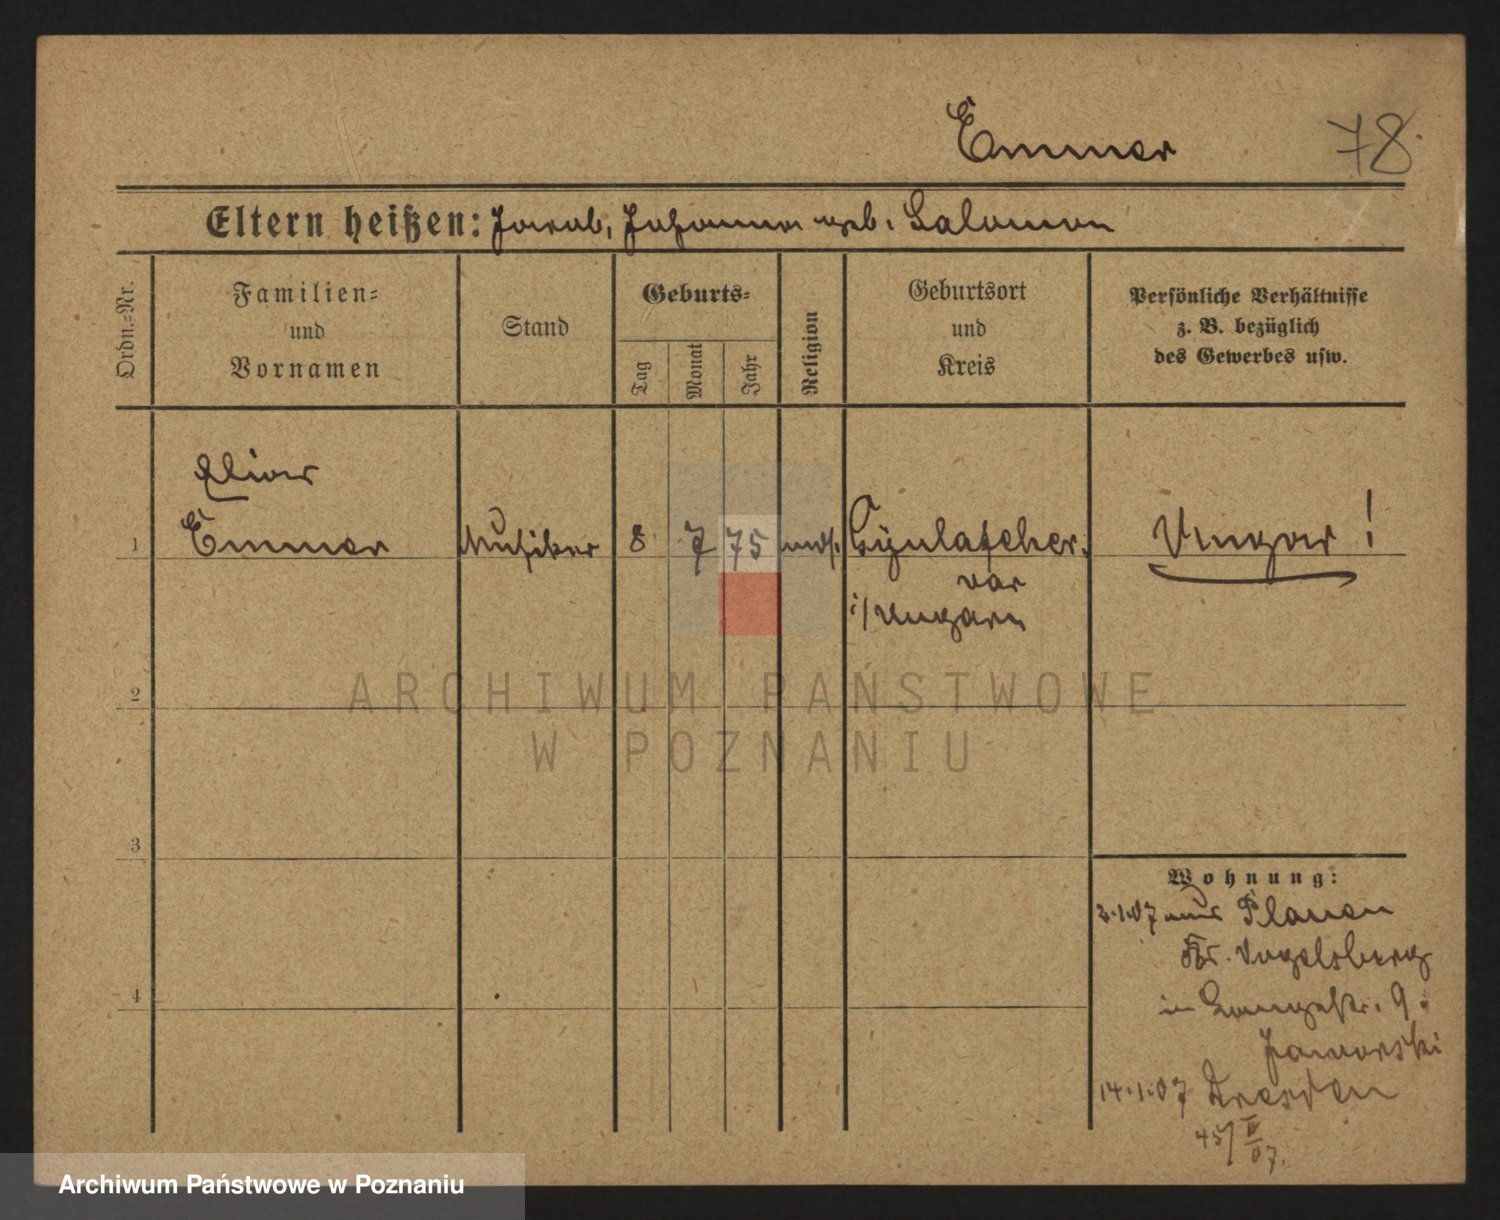 Emmer 78
Eltern heißen: Jacob, Johanna geb. Salomon
Ordn.=Nr.
Familien=
und
Vornamen
Stand
Geburts=
Tag
Monat
Jahr
Religion
Geburtsort
und
Kreis
Persönliche Verhältnisse
z. B. bezüglich
des Gewerbes usw.
1
Emmer Musiker 8 7 75 Gyulafeher.
var
i/Ungarn
Ungar!
2
3
4
Wohnung:
2.1.07 aus Plauen
Kr. Vogelsberg
in Langestr. 9.
Jaworski
14.1.07 Dresden
45/II 07.
ARCHIWUM PAŃSTWOWE
W POZNANIU
Archiwum Państwowe w Poznaniu